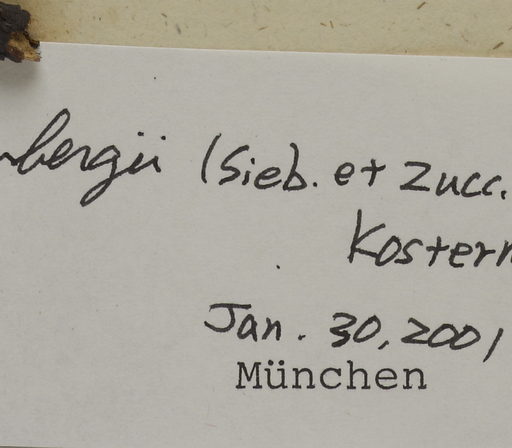 nbergii (Sieb. et Zucc.
Kostern
Jan. 30, 2001
München